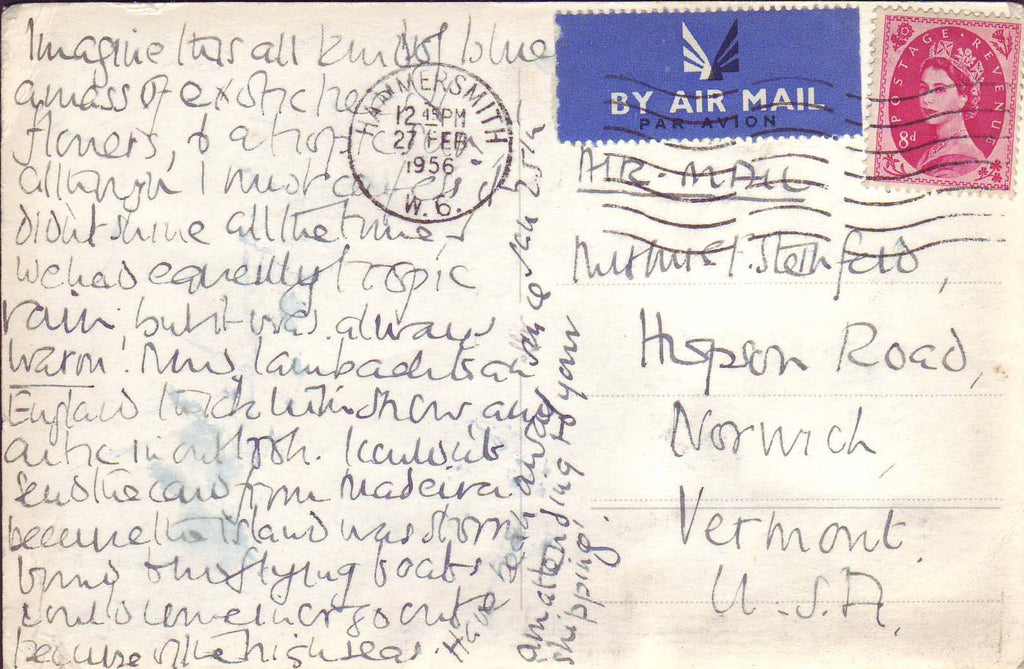 Imagine this all kinds of blue
a mass of exotic
flowers, & a tropic
although I must confess it
didnt shine all the time,
we had equally tropic
rain, but it was always
warm. Now I am back to an
England thick with snow and
arctic in outlook. I couldnt
send the card from Madeira
because the island was storm
bound & no flying boats
could come in or go out
because of the high seas.
Have been away since Jan 25th
am attending to your
shipping.
HAMMERSMITH
12 45 PM
27 FEB
1956
W. 6.
BY AIR MAIL
PAR AVION
POSTAGE REVENUE
8d
AIR-MAIL
Mr & Mrs
Hopson Road,
Norwich,
Vermont.
U.S.A.